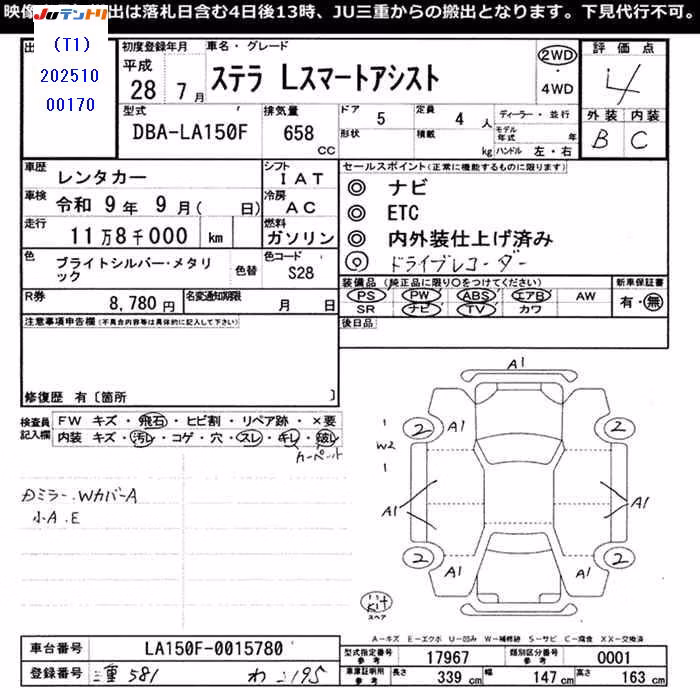 映像 出は落札日含む4日後13時、JU三重からの搬出となります。下見代行不可。
JUテントリ
(T1)
202510
00170
出
初度登録年月
平成
28 7月
車名・グレード
ステラ Lスマートアシスト
2WD
・
4WD
評価点
4
外装 内装
B C
型式
DBA-LA150F
排気量
658
CC
ドア 5
形状
定員 4 人
積載 kg
ディーラー・並行
モデル年式 年
ハンドル 左・右
車歴 レンタカー
シフト IAT
車検 令和 9年 9月( 日)
冷房 AC
走行 11万8千000 km
燃料 ガソリン
色 ブライトシルバー・メタリック
色替
色コード S28
R券 8,780円
名変通知期限 月 日
セールスポイント(正常に機能するものに限ります)
◎ ナビ
◎ ETC
◎ 内外装仕上げ済み
◎ ドライブレコーダー
装備品(純正品に限り○をつけてください)
PS PW ABS エアB AW
SR ナビ TV カワ
新車保証書
有・無
後日品
注意事項申告欄(不具合内容等は具体的に記入して下さい)
修復歴 有〔箇所 〕
検査員記入欄
FW キズ・飛石・ヒビ割・リペア跡・×要
内装 キズ・汚レ・コゲ・穴・スレ・キレ・破レ
カーペット
カミラー・WカバーA
小A.E
A1
2 A1 A1 2
1
W2
1
A1 A1
2 A1 A1 2
キット
スペア
A-キズ E-エクボ U-凹み W-補修跡 S-サビ C-腐食 XX-交換済
車台番号 LA150F-0015780
登録番号 三重 581 わ 195
型式指定番号 参考 17967
類別区分番号 参考 0001
車庫証明用 参考 長さ 339 cm 幅 147 cm 高さ 163 cm